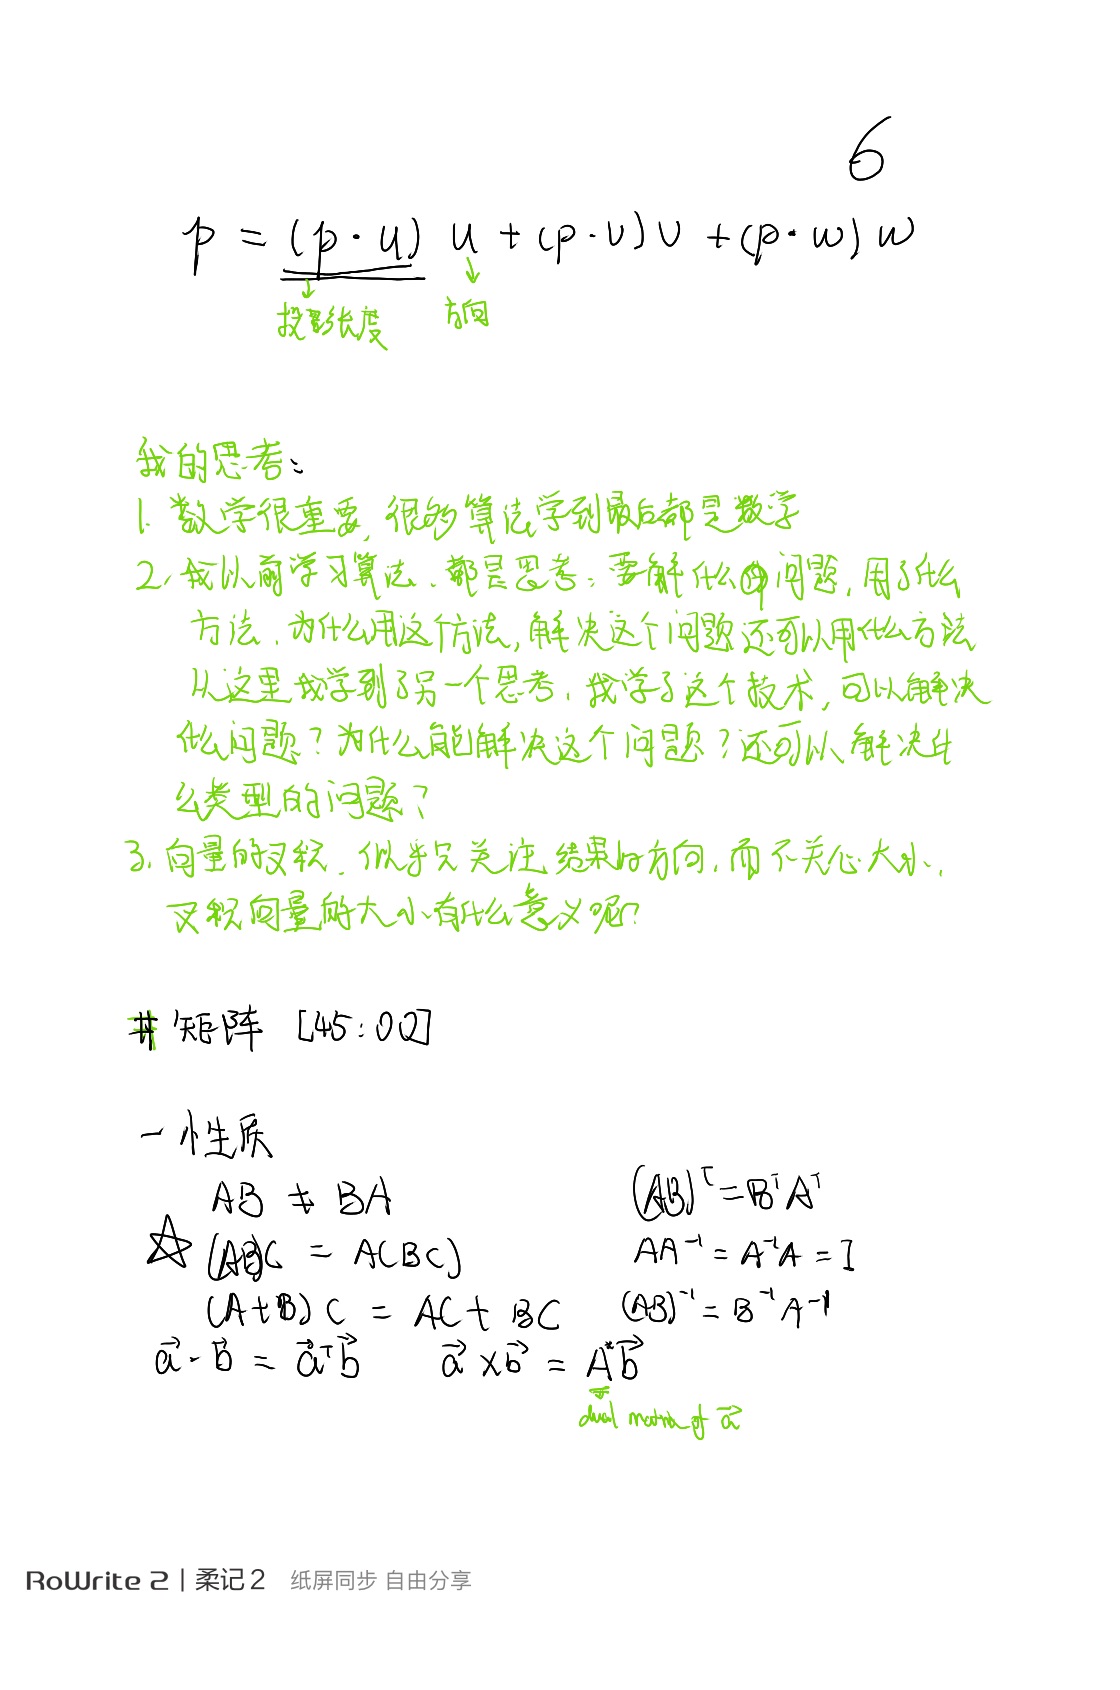 6
p = (p·u) u + (p·v) v + (p·w) w
投影长度 方向
我的思考:
1. 数学很重要, 很多算法学到最后都是数学
2. 我以前学习算法、都是思考: 要解什么的问题, 用了什么
方法、为什么用这个方法, 解决这个问题还可以用什么方法
从这里我学到了另一个思考, 我学了这个技术, 可以解决
什么问题? 为什么能解决这个问题? 还可以解决什
么类型的问题?
3. 向量的叉积, 似乎只关注结果的方向, 而不关心大小,
叉积向量的大小有什么意义呢?
# 矩阵 [45:00]
一 性质
AB ≠ BA (AB)ᵀ = BᵀAᵀ
☆ (AB)C = A(BC) AA⁻¹ = A⁻¹A = I
(A+B)C = AC + BC (AB)⁻¹ = B⁻¹A⁻¹
a⃗·b⃗ = a⃗ᵀb⃗ a⃗×b⃗ = A*b⃗
dual matrix of a⃗
RoWrite 2 | 柔记 2 纸屏同步 自由分享